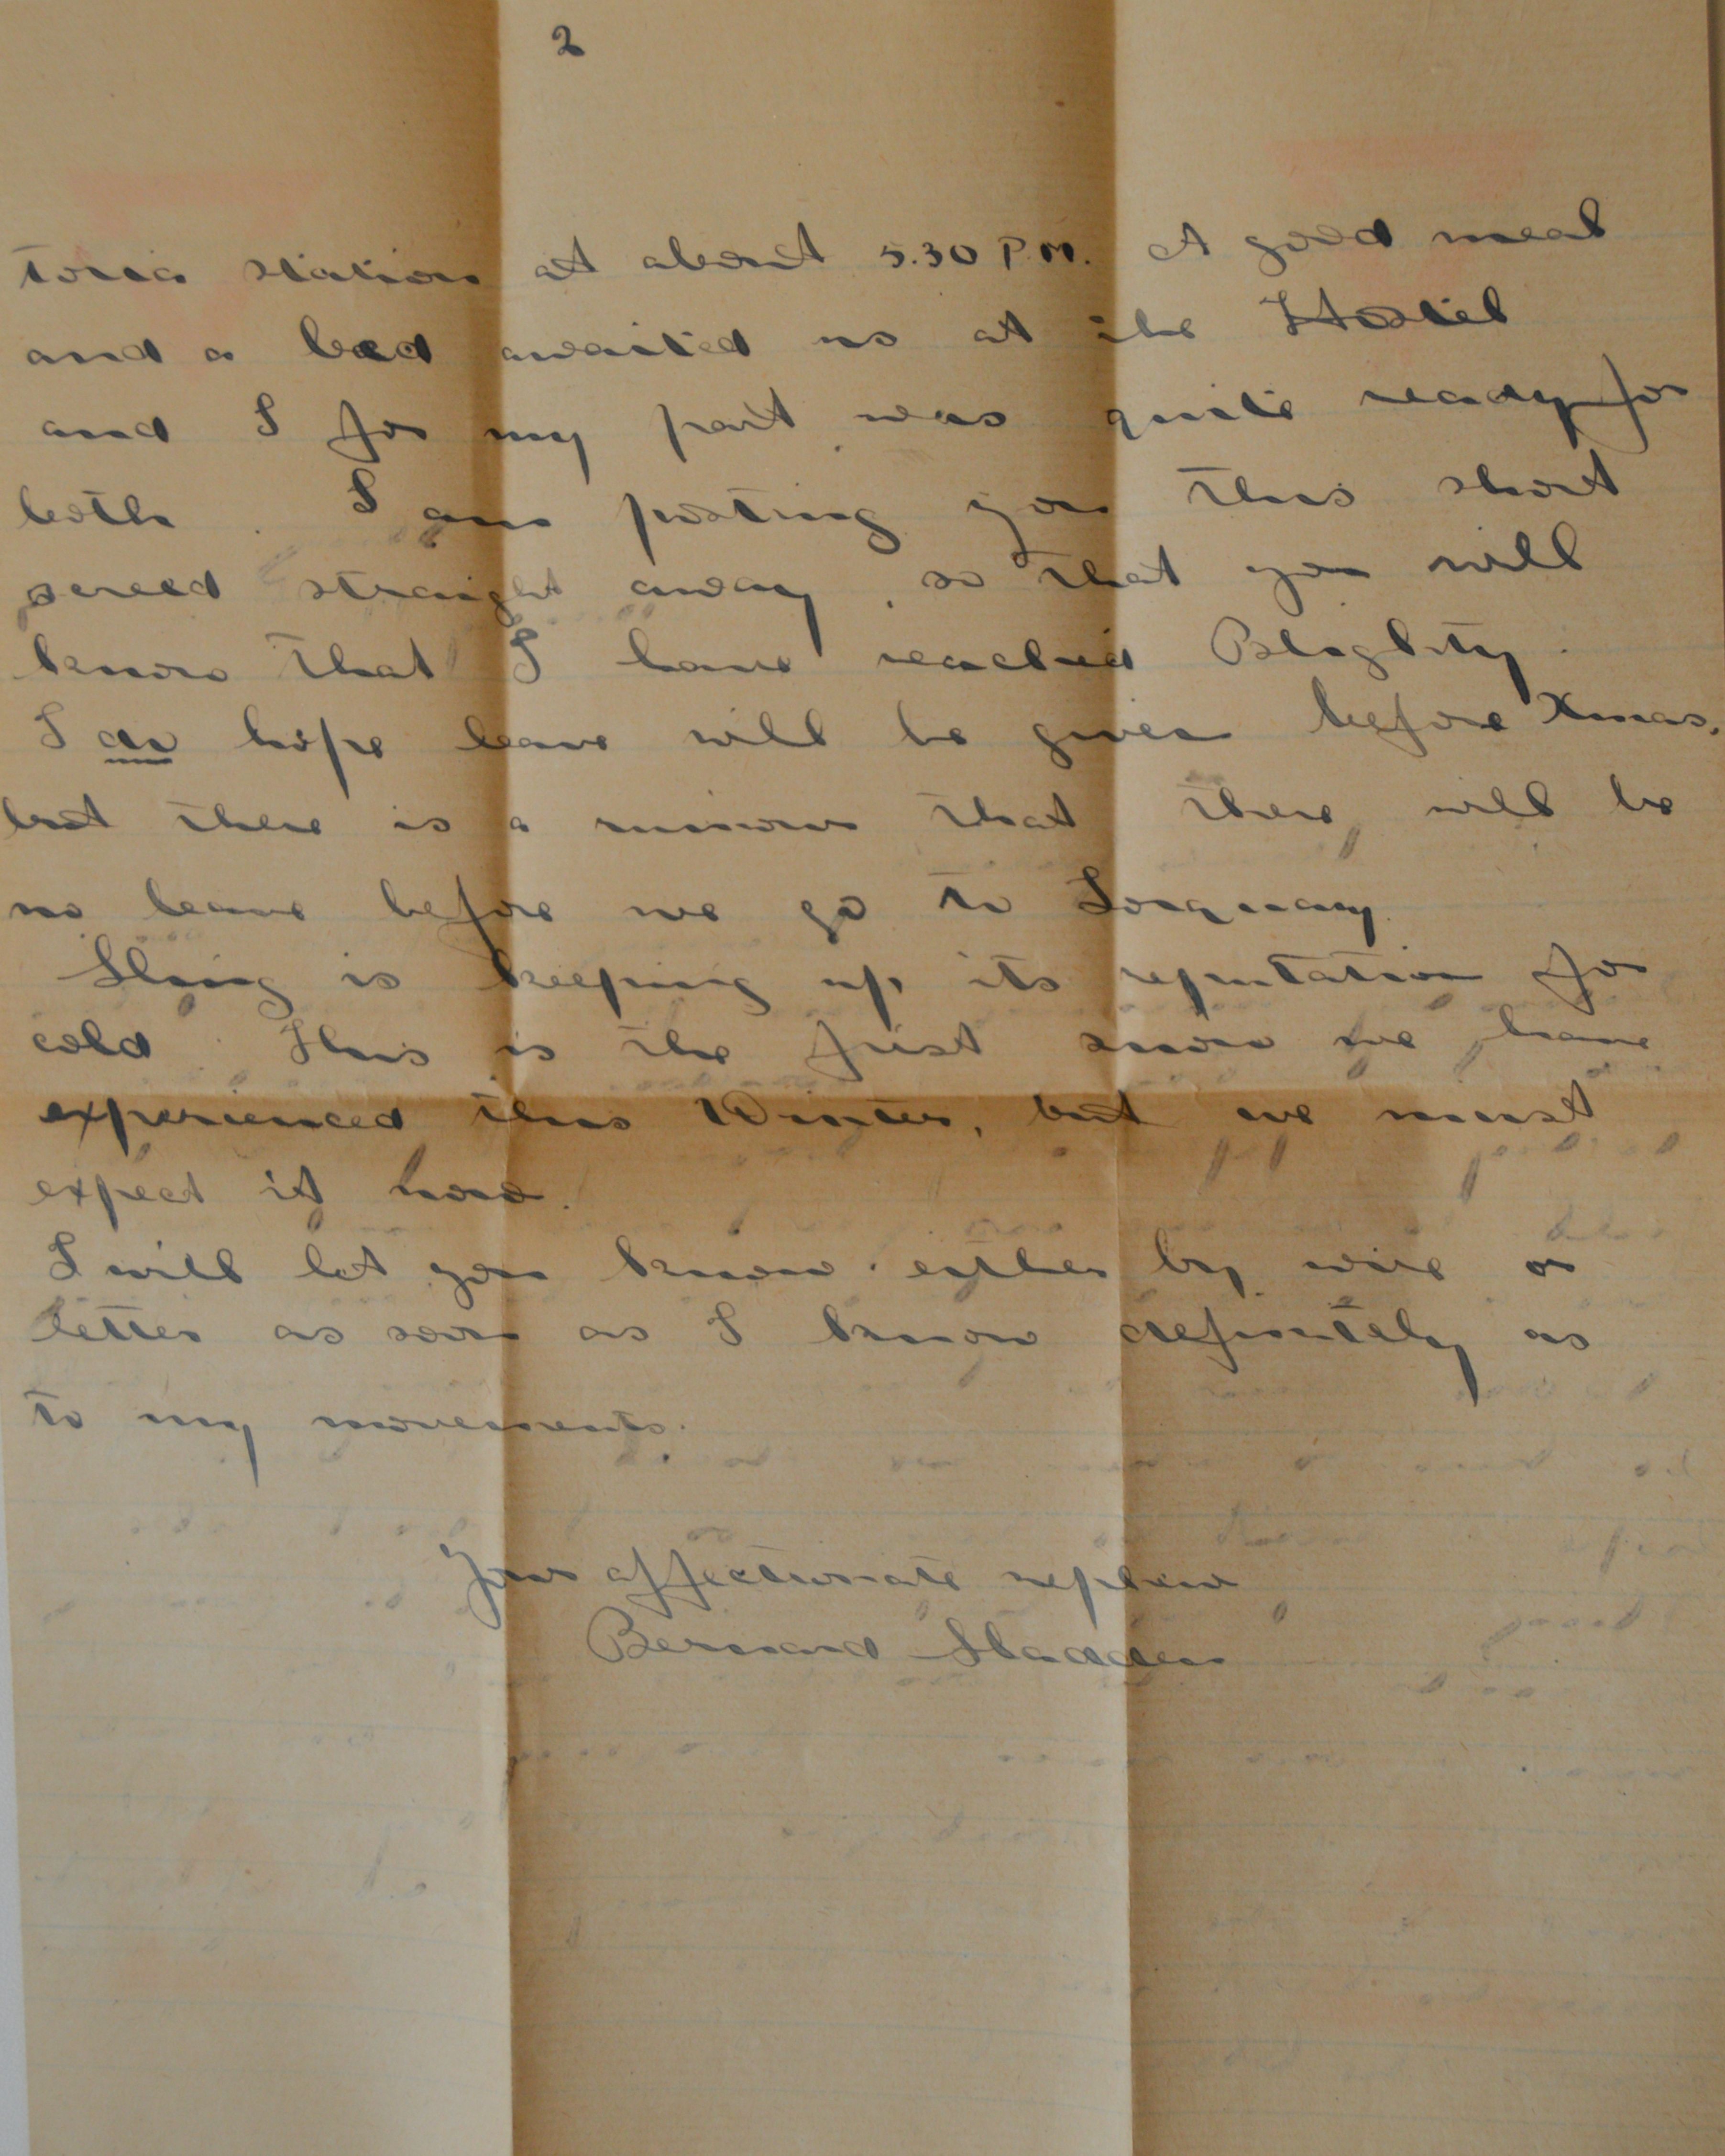 2
toria station at about 5.30 P.M. A good meal
and a bed awaited us at the Hostel
and I for my part was quite ready for
both. I am posting you this short
screed straight away, so that you will
know that I have reached Blighty.
I do hope leave will be given before Xmas,
but there is a rumour that there will be
no leave before we go to Torquay.
Sling is keeping up its reputation for
cold. This is the first snow we have
experienced this Winter, but we must
expect it now.
I will let you know either by wire or
letter as soon as I know definitely as
to my movements.
Your affectionate nephew
Bernard Sladden